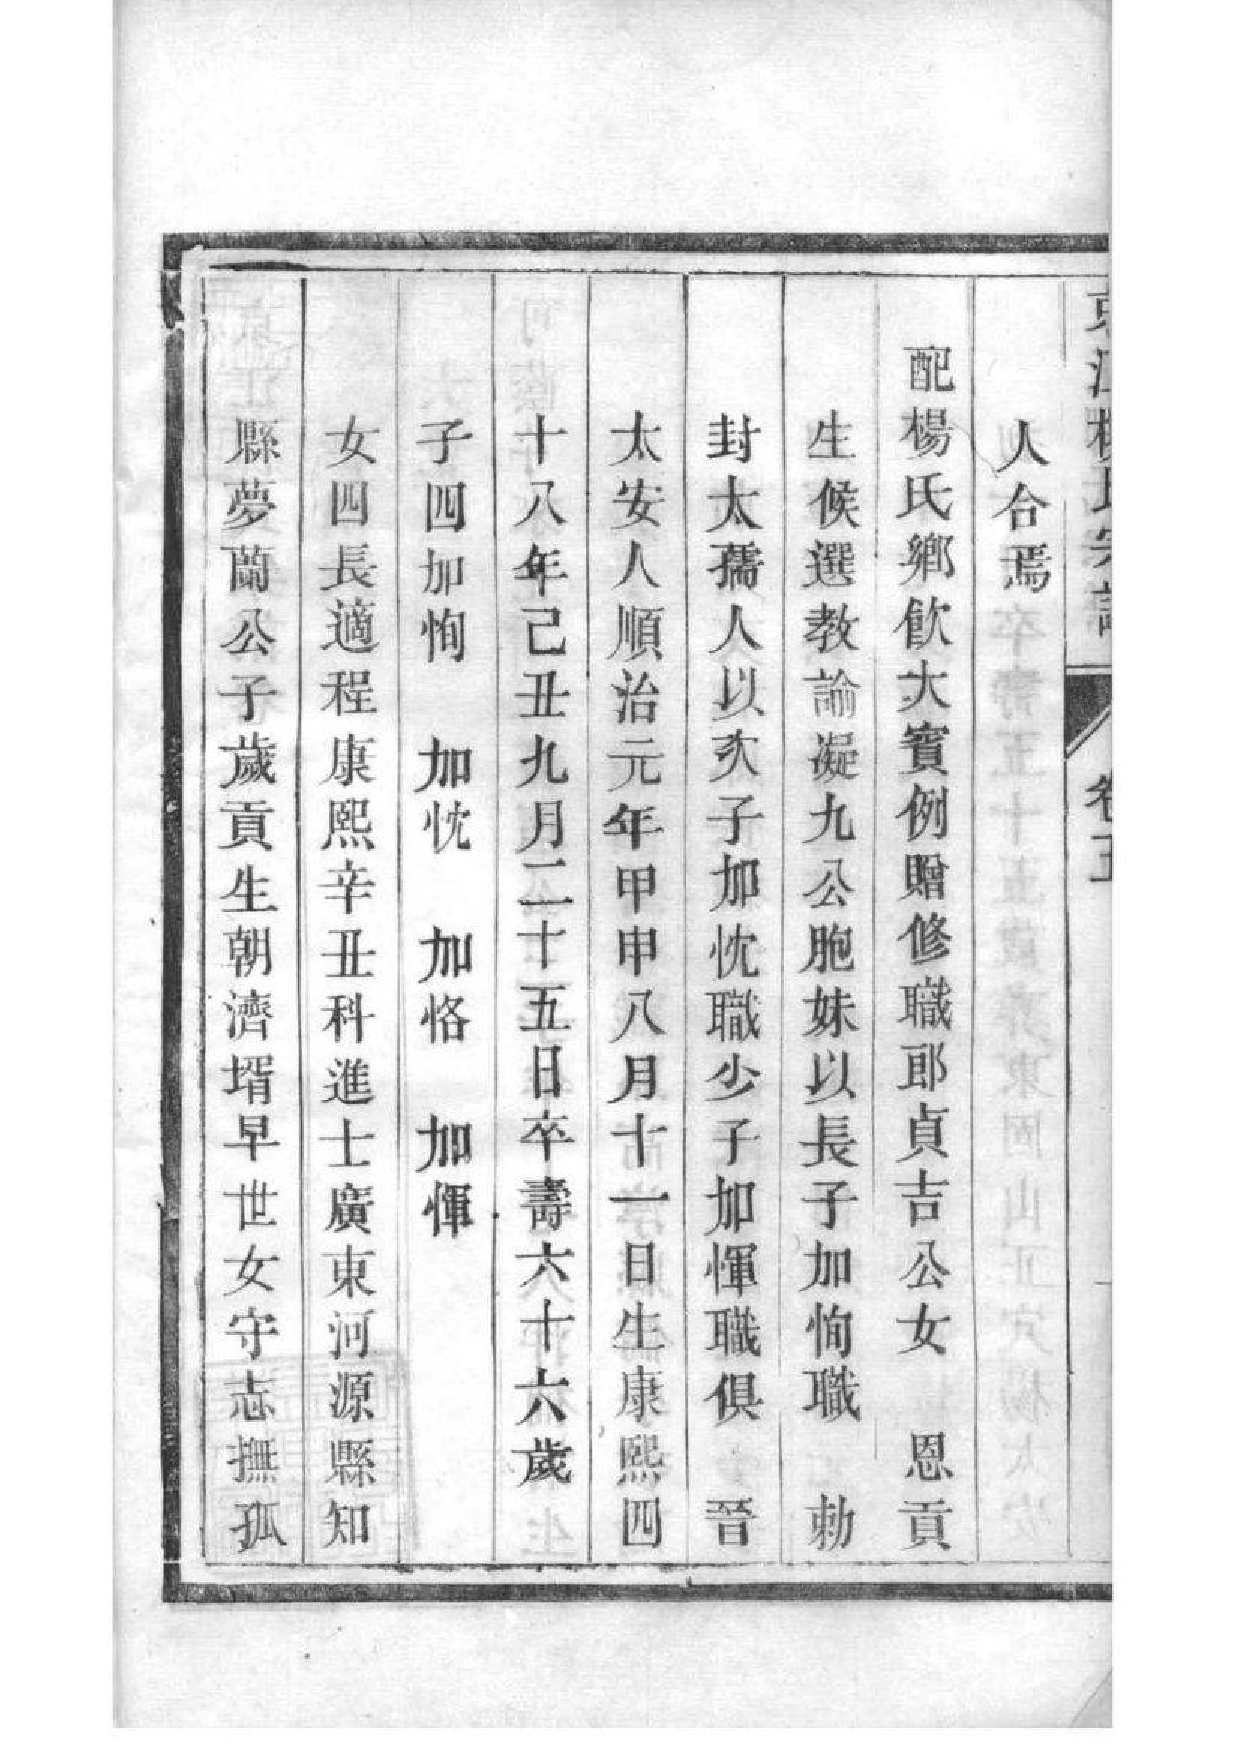 人合焉
配楊氏鄉飲大賓例贈修職郎貞吉公女　恩貢
生候選教諭凝九公胞妹以長子加恂職　勅
封太孺人以次子加忱職少子加惲職俱　晉
太安人順治元年甲申八月十一日生康熙四
十八年己丑九月二十五日卒壽六十六歲
子四加恂　加忱　加恪　加惲
女四長適程康熙辛丑科進士廣東河源縣知
縣夢蘭公子歲貢生朝濟壻早世女守志撫孤